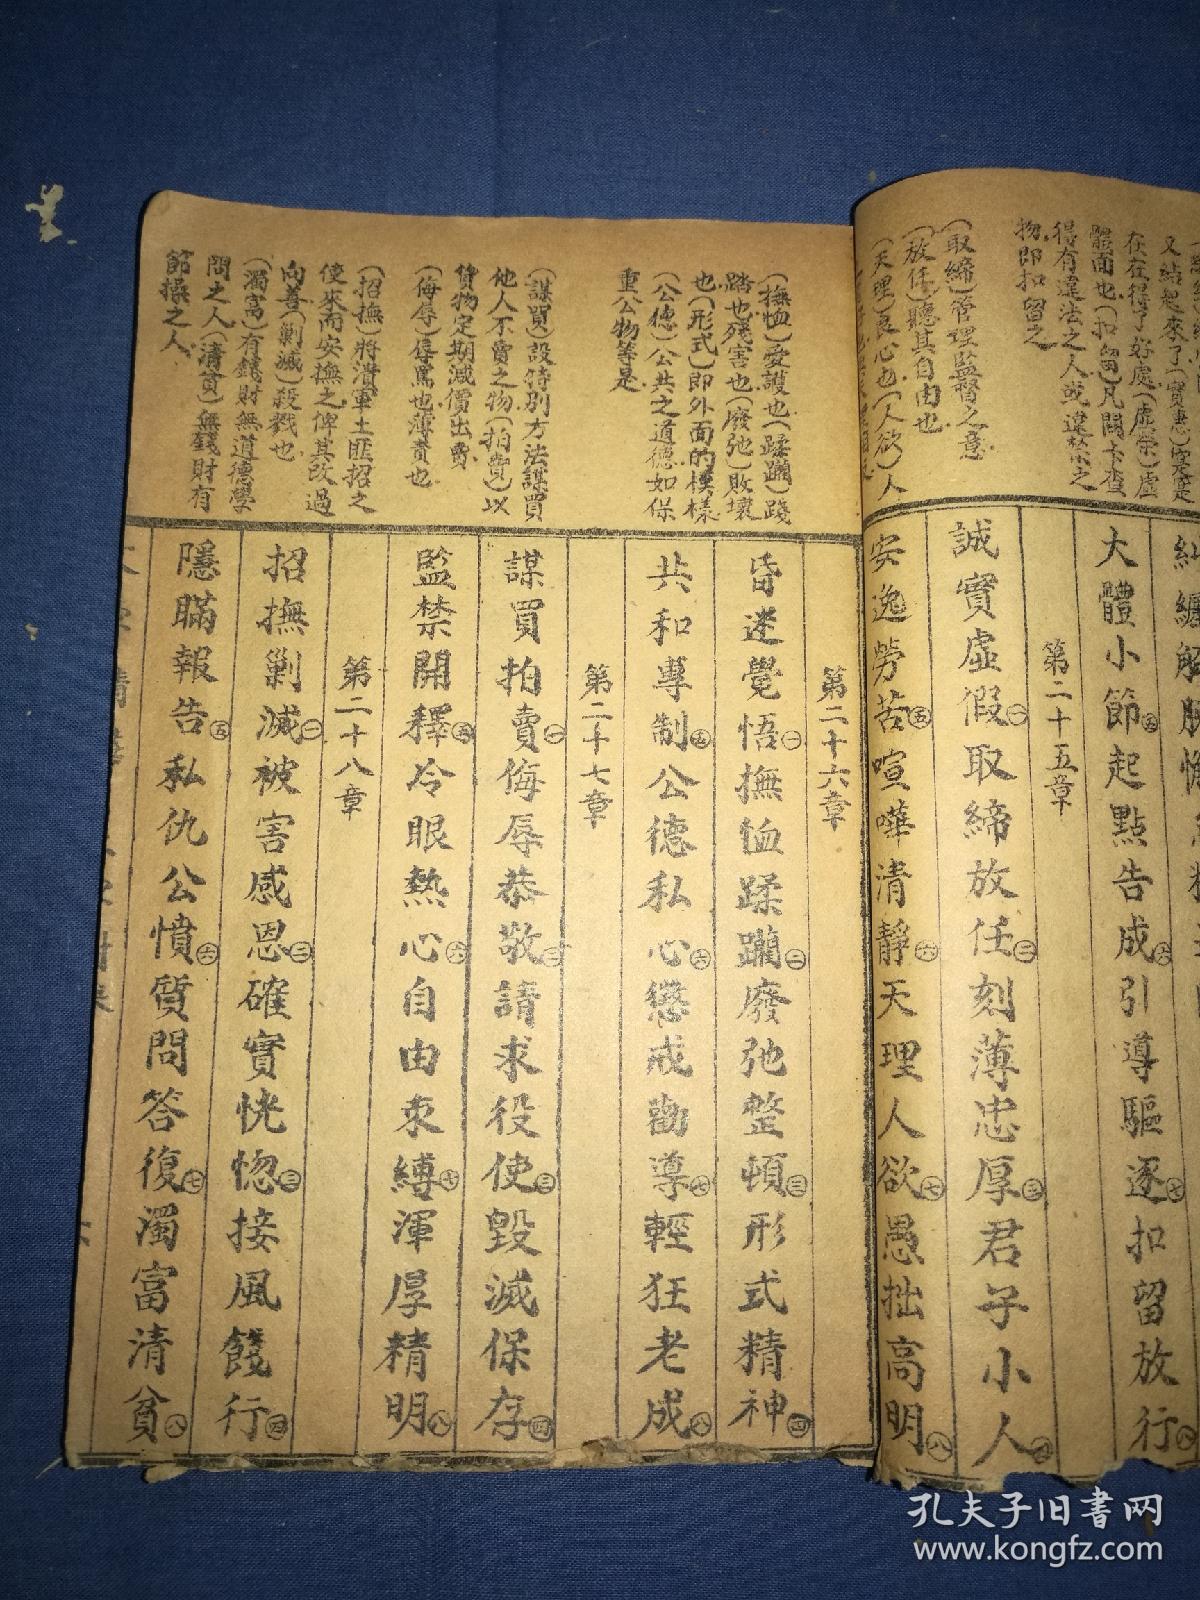 又結起來了(實惠)實是
在在得了好處(虛榮)虛
體面也(扣留)凡關卡查
得有違法之人或違禁之
物即扣留之
(取締)管理監督之意
(放任)聽其自由也
(天理)良心也(人欲)人
大體小節㊄起點告成㊅引導驅逐㊆扣留放行㊇
第二十五章
誠實虛假㊀取締放任㊁刻薄忠厚㊂君子小人㊃
安逸勞苦㊄喧嘩清靜㊅天理人欲㊆愚拙高明㊇
(撫恤)愛護也(蹂躪)踐
踏也殘害也(廢弛)敗壞
也(形式)即外面的模樣
(公德)公共之道德如保
重公物等是
(謀買)設特別方法謀買
他人不賣之物(拍賣)以
貨物定期減價出賣
(侮辱)辱罵也薄責也
(招撫)將潰軍土匪招之
使來而安撫之俾其改過
向善(剿滅)殺戮也
(濁富)有錢財無道德學
問之人(清貧)無錢財有
節操之人
第二十六章
昏迷覺悟㊀撫恤蹂躪㊁廢弛整頓㊂形式精神㊃
共和專制㊄公德私心㊅懲戒勸導㊆輕狂老成㊇
第二十七章
謀買拍賣㊀侮辱恭敬㊁請求役使㊂毀滅保存㊃
監禁開釋㊄冷眼熱心㊅自由束縛㊆渾厚精明㊇
第二十八章
招撫剿滅㊀被害感恩㊁確實恍惚㊂接風餞行㊃
隱瞞報告㊄私仇公憤㊅質問答復㊆濁富清貧㊇
孔夫子旧书网
www.kongfz.com